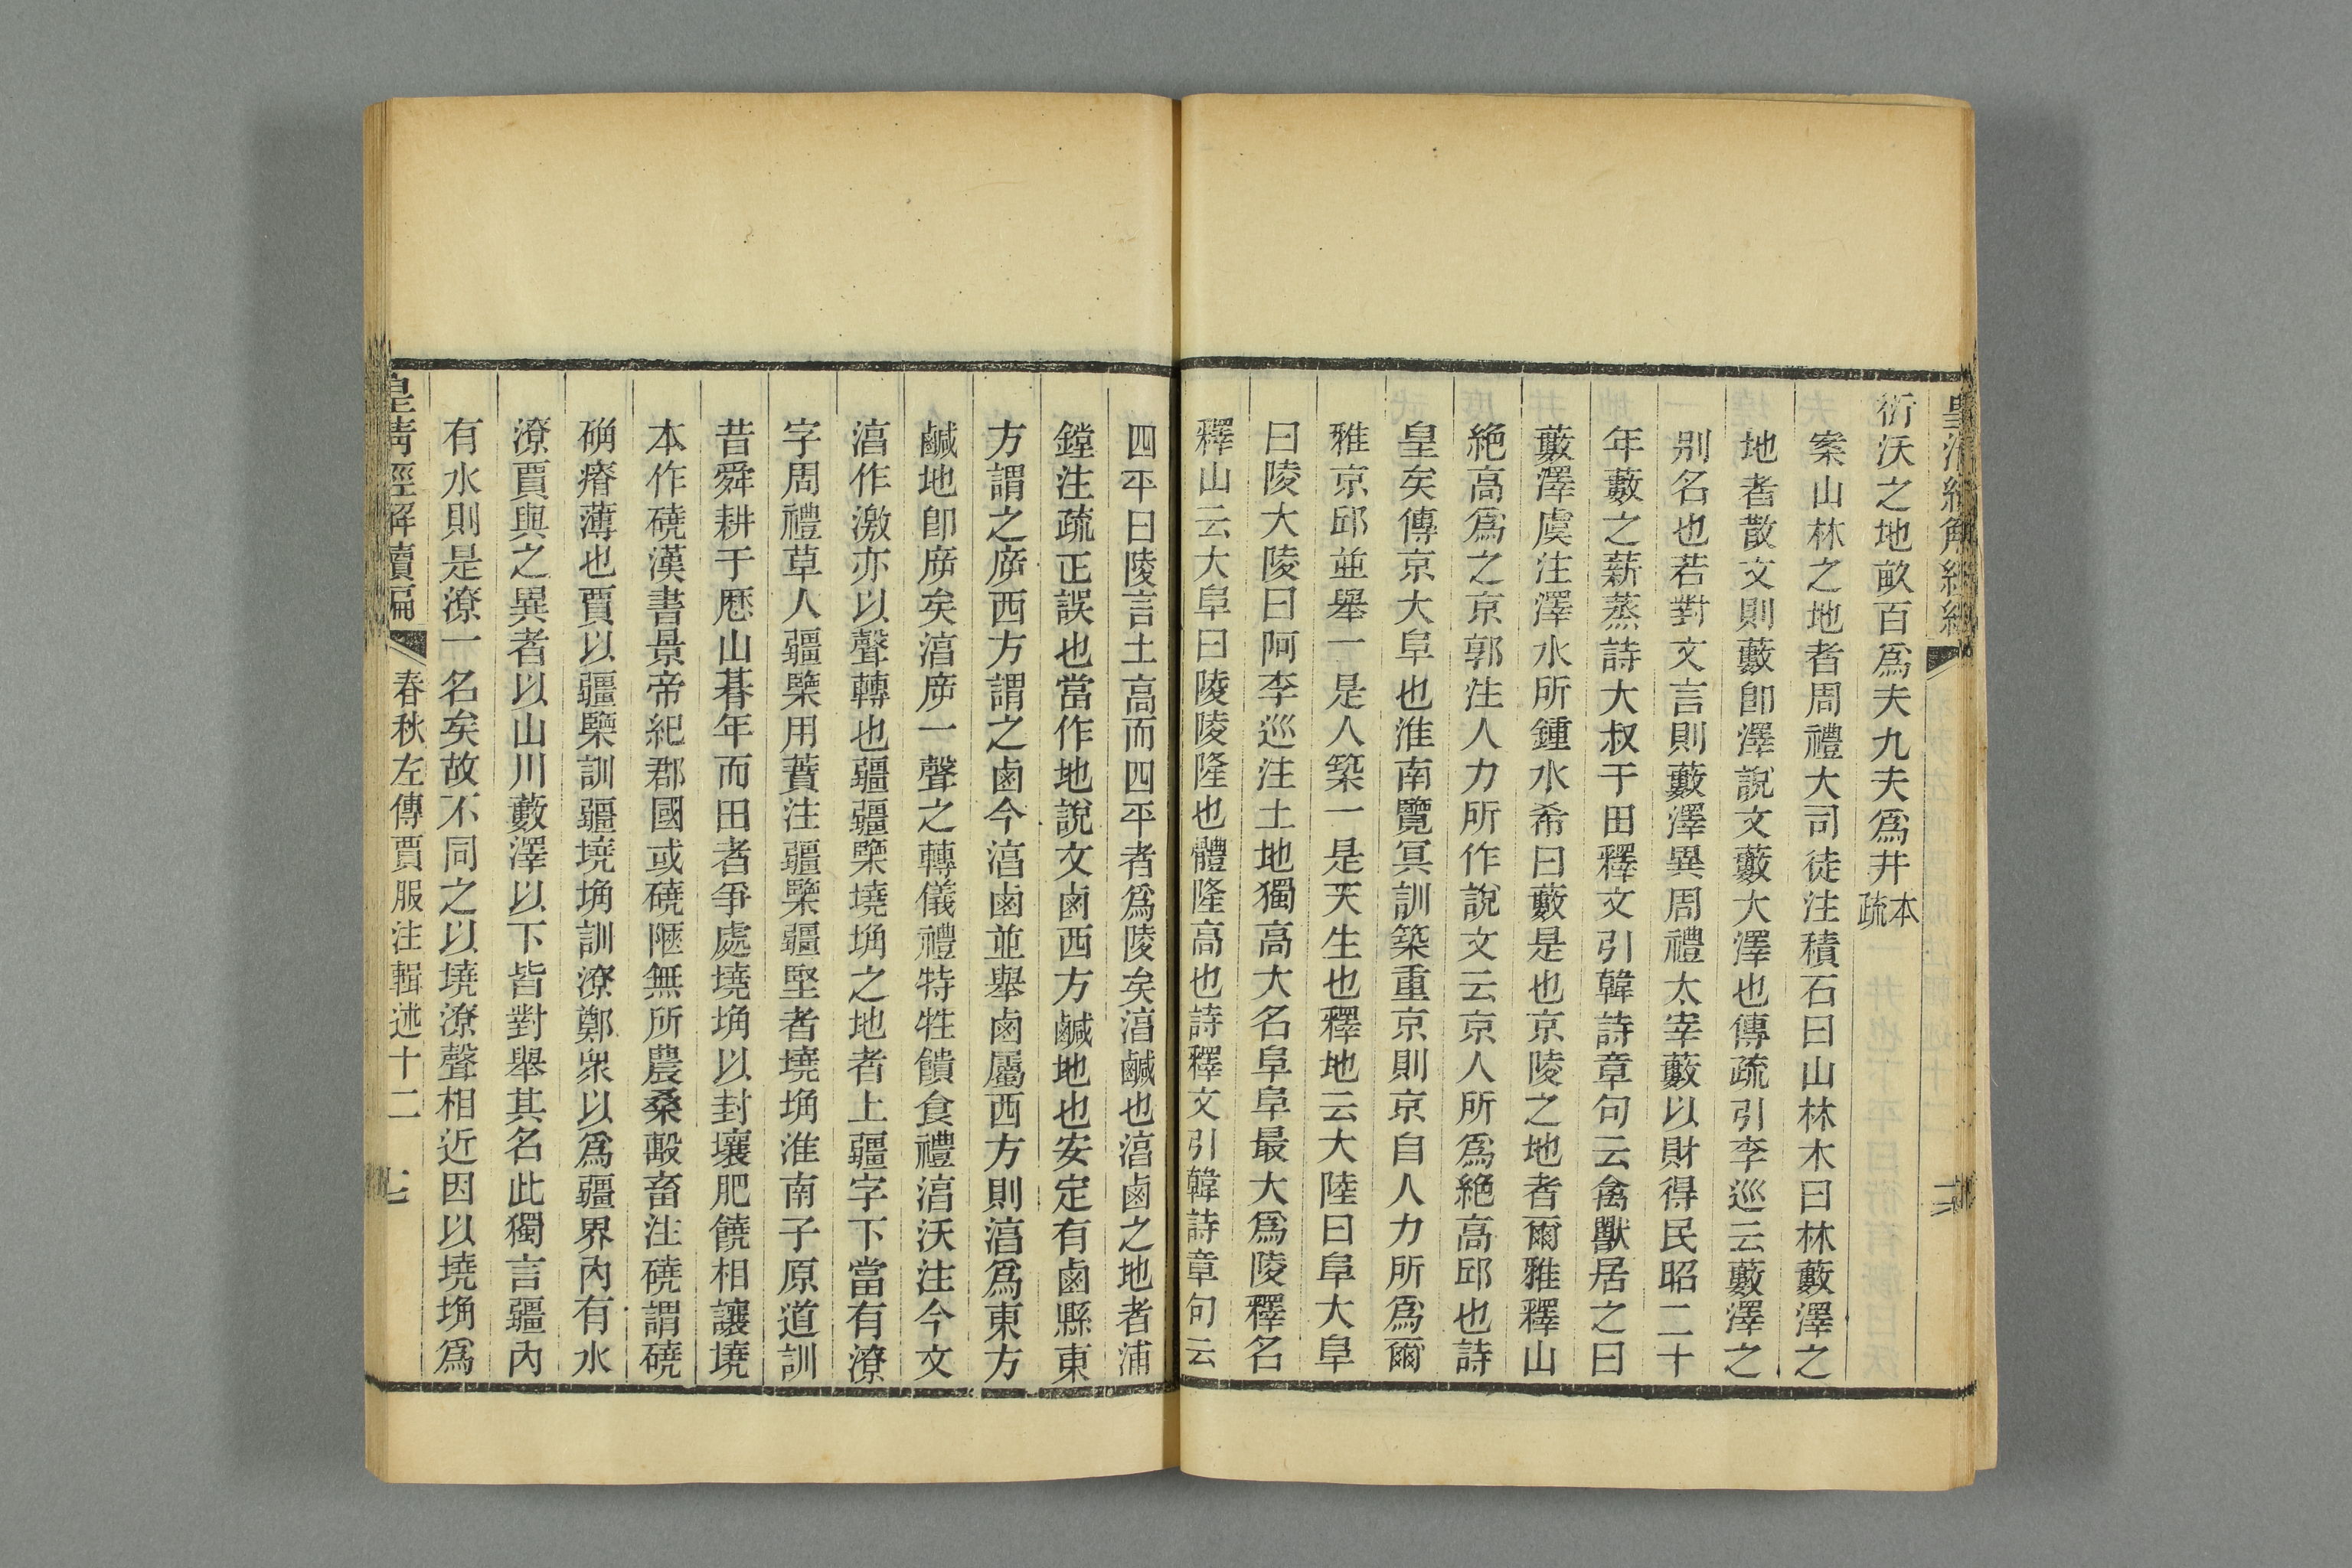 衍沃之地畝百爲夫九夫爲井本疏
案山林之地者周禮大司徒注積石曰山林木曰林藪澤之
地者散文則藪卽澤說文藪大澤也傳疏引李巡云藪澤之
别名也若對文言則藪澤異周禮太宰藪以財得民昭二十
年藪之薪蒸詩大叔于田釋文引韓詩章句云禽獸居之曰
藪澤虞注澤水所鍾水希曰藪是也京陵之地者爾雅釋山
絶高爲之京郭注人力所作說文云京人所爲絶高邱也詩
皇矣傳京大阜也淮南覽冥訓築重京則京自人力所爲爾
雅京邱並舉一是人築一是天生也釋地云大陸曰阜大阜
曰陵大陵曰阿李巡注土地獨高大名阜阜最大爲陵釋名
釋山云大阜曰陵陵隆也體隆高也詩釋文引韓詩章句云
四平曰陵言土高而四平者爲陵矣㵝鹹也㵝鹵之地者浦
鏜注疏正誤也當作地說文鹵西方鹹地也安定有鹵縣東
方謂之㡿西方謂之鹵今㵝鹵並舉鹵屬西方則㵝爲東方
鹹地卽㡿矣㵝㡿一聲之轉儀禮特牲饋食禮㵝沃注今文
㵝作激亦以聲轉也疆疆㯺墝埆之地者上疆字下當有潦
字周禮草人疆㯺用蕡注疆㯺疆堅者墝埆淮南子原道訓
昔舜耕于歷山朞年而田者爭處墝埆以封壤肥饒相讓墝
本作磽漢書景帝紀郡國或磽陿無所農桑毄畜注磽謂磽
确瘠薄也賈以疆㯺訓疆墝埆訓潦鄭衆以爲疆界內有水
潦賈與之異者以山川藪澤以下皆對舉其名此獨言疆內
有水則是潦一名矣故不同之以墝潦聲相近因以墝埆爲
皇清經解續編 春秋左傳賈服注輯述十二 七